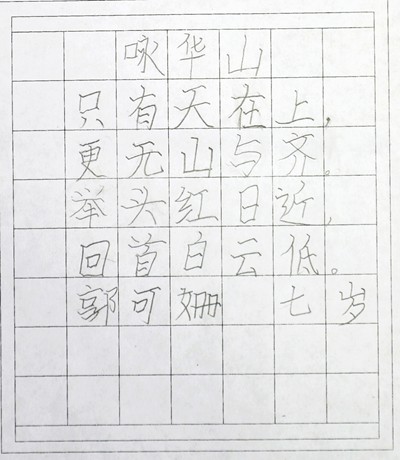 咏华山
只有天在上，
更无山与齐。
举头红日近，
回首白云低。
郭可姗 七岁